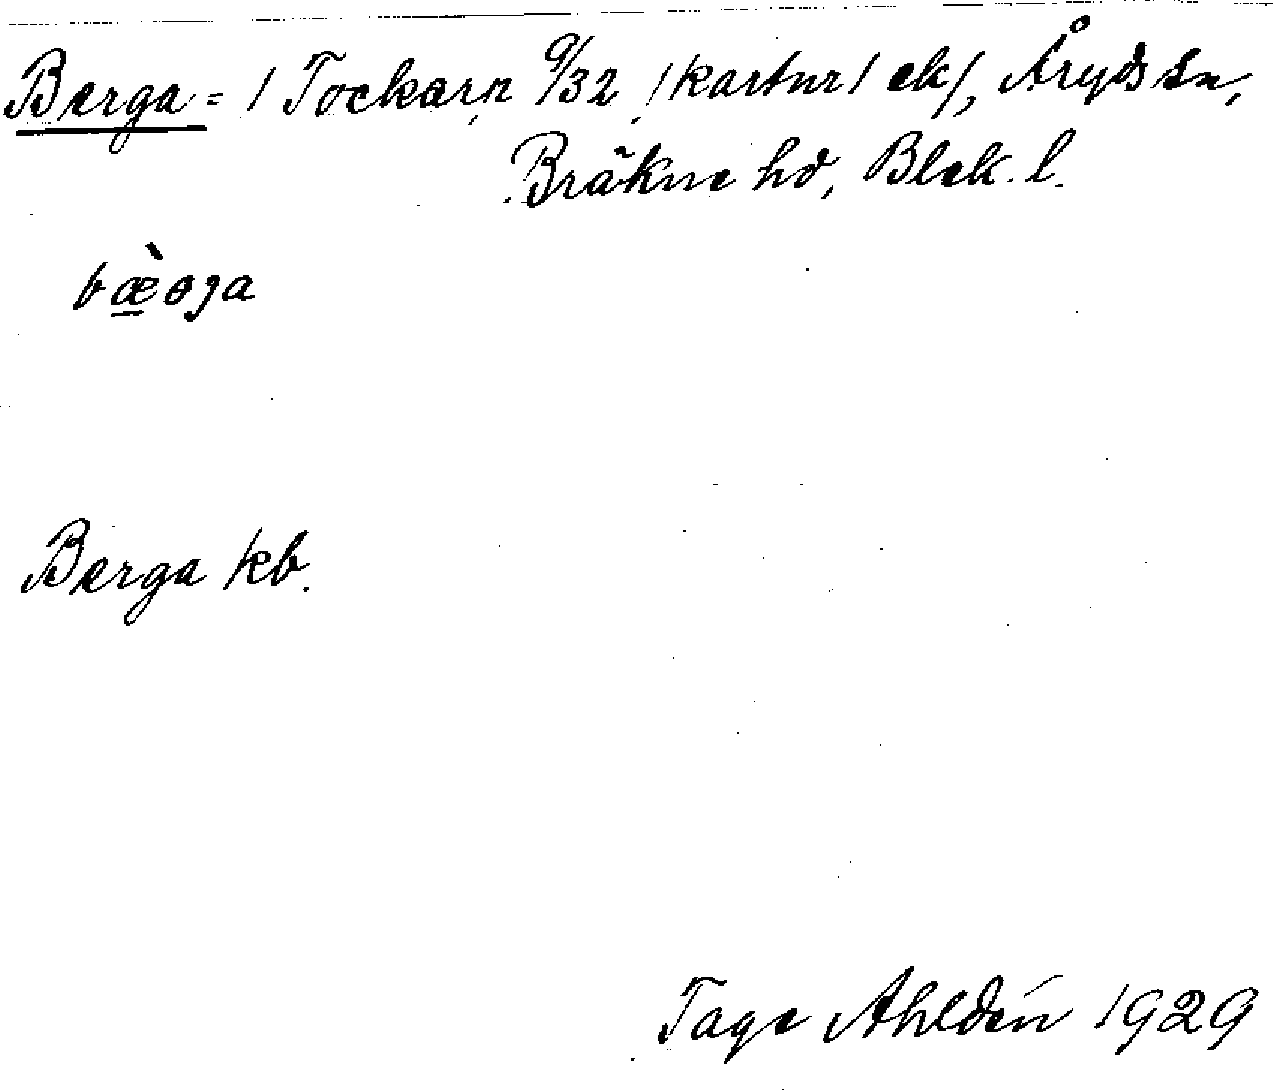 Berga = / Tockarp 9/32 /kartnr/ ek/, Åryds sn,
Bräkne hd, Blek. l.
bæ̀ɘga
Berga kb.
Tage Ahldén 1929